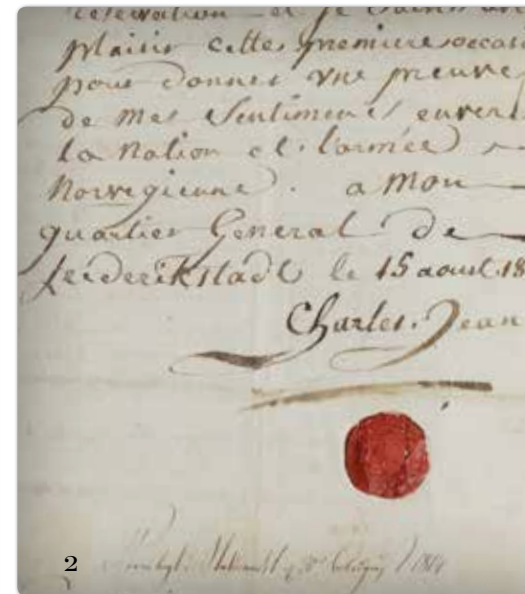 reservation et je saisis av
plaisir cette premiere occas
pour donner une preuve
de mes Sentimens envers
la Nation et l'armée
Norvegienne. a Mon
quartier General de
frederikstadt le 15 aout 18
Charles Jean
2
1814